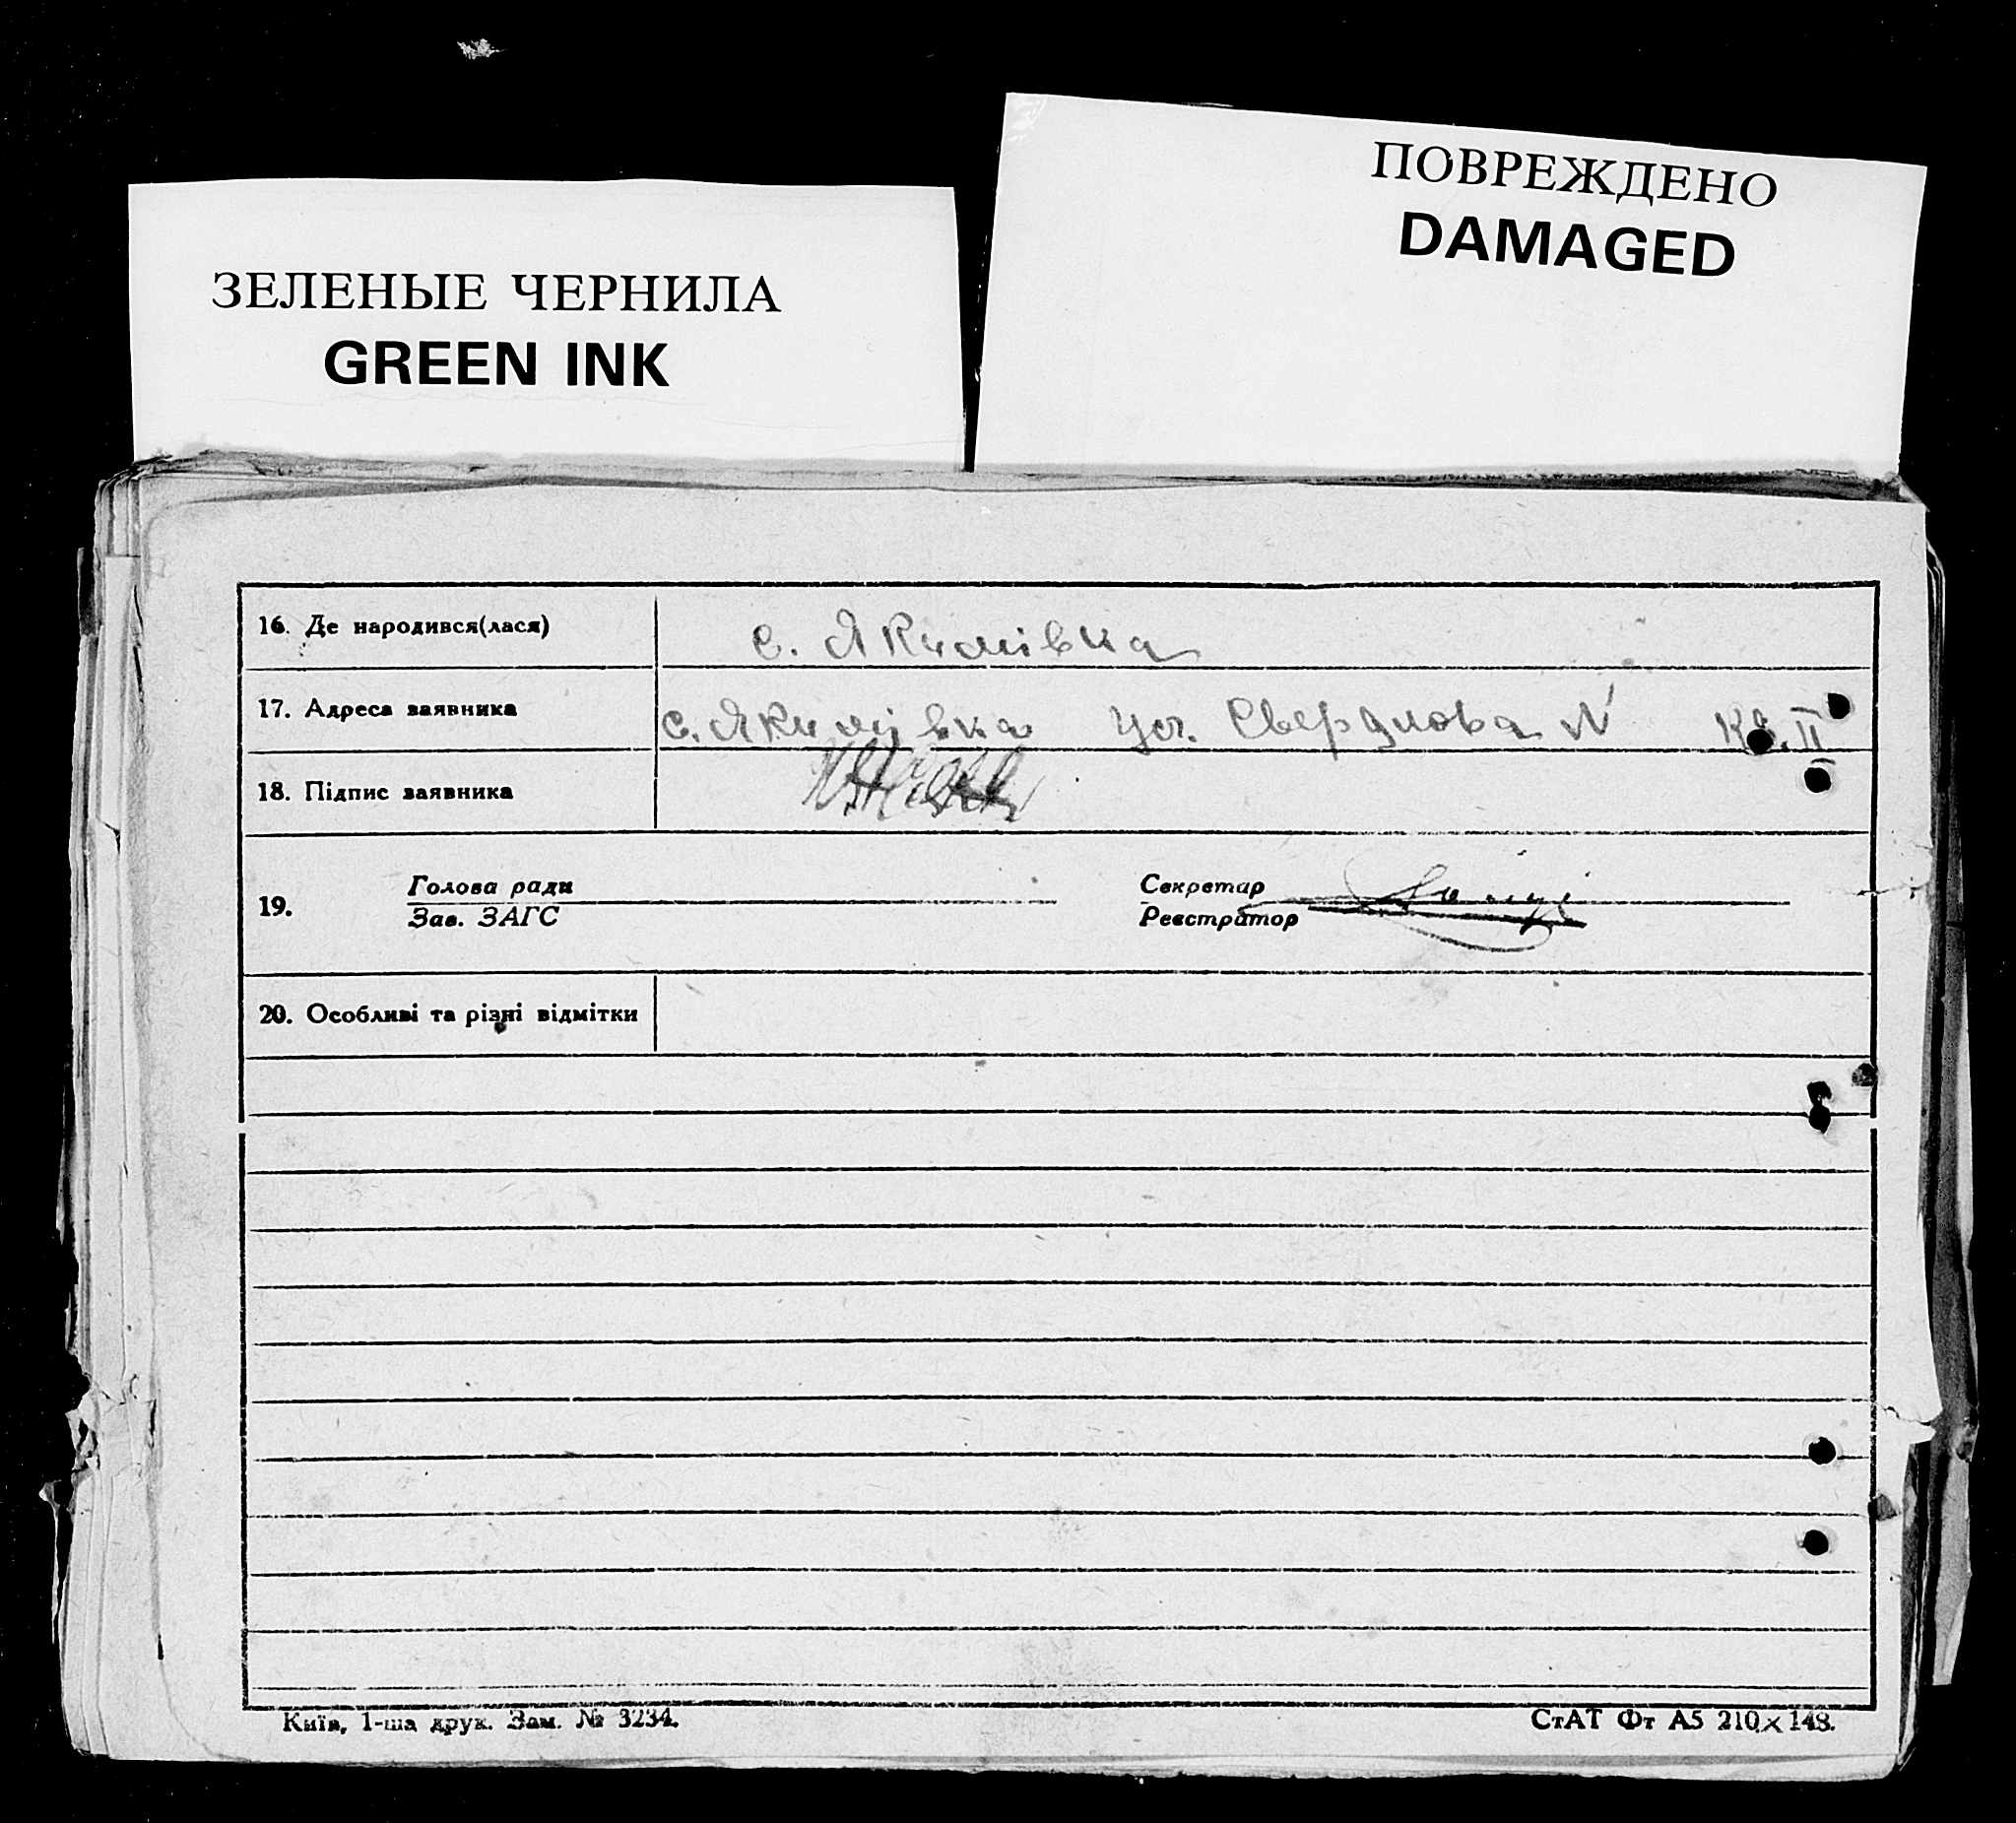 ПОВРЕЖДЕНО
DAMAGED
ЗЕЛЕНЫЕ ЧЕРНИЛА
GREEN INK
16. Де народився(лася) с. Якимівка
17. Адреса заявника с. Якимівка ул. Свердлова N кв. II
18. Підпис заявника
19. Голова ради Секретар
Зав. ЗАГС Реєстратор
20. Особливі та різні відмітки
Київ, 1-ша друк. Зам. № 3234. СтАТ Фт А5 210×148.